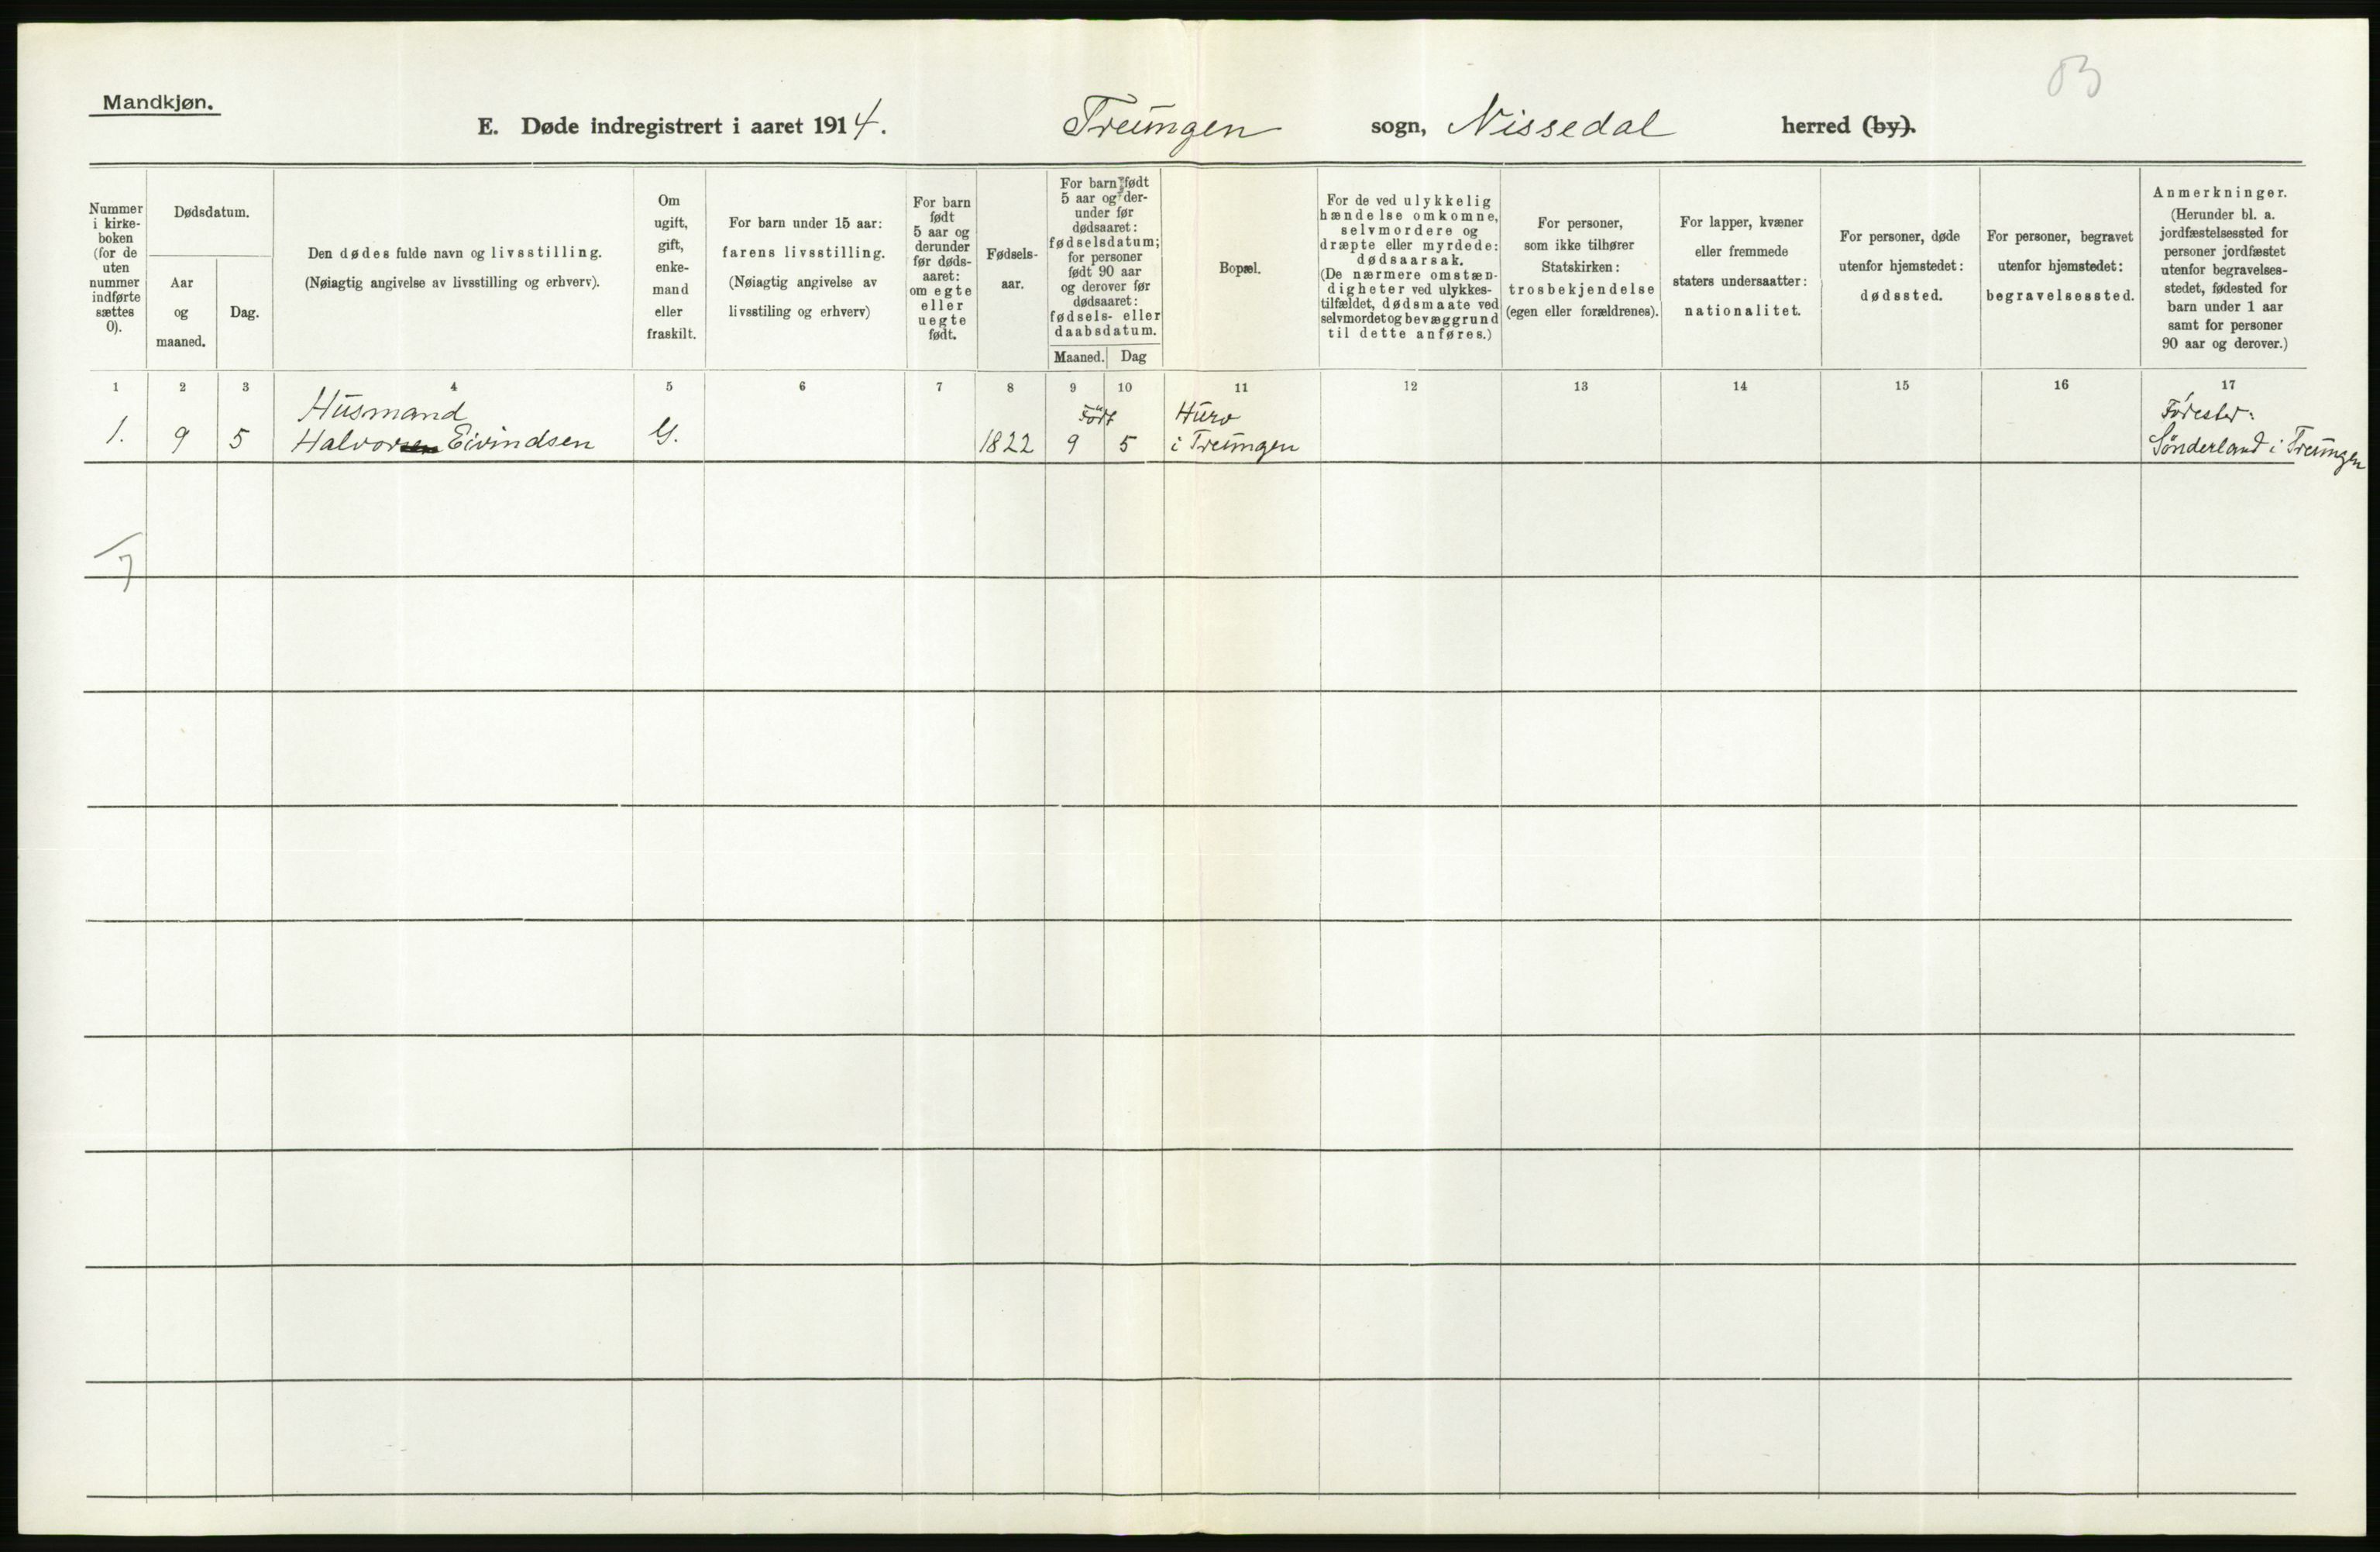 Mandkjøn.
E. Døde indregistrert i aaret 1914. Treungen sogn, Nissedal herred (by).
Nummer
i kirke-
boken
(for de
uten
nummer
indførte
sættes
0).
Dødsdatum.
Aar
og
maaned.
Dag.
Den dødes fulde navn og livsstilling.
(Nøiagtig angivelse av livsstilling og erhverv).
Om
ugift,
gift,
enke-
mand
eller
fraskilt.
For barn under 15 aar:
farens livsstilling.
(Nøiagtig angivelse av
livsstiling og erhverv)
For barn
født
5 aar og
derunder
før døds-
aaret:
om egte
eller
uegte
født.
Fødsels-
aar.
For barn født
5 aar og der-
under før
dødsaaret:
fødselsdatum;
for personer
født 90 aar
og derover før
dødsaaret:
fødsels- eller
daabsdatum.
Maaned. Dag
Bopæl.
For de ved ulykkelig
hændelse omkomne,
selvmordere og
dræpte eller myrdede:
dødsaarsak.
(De nærmere omstæn-
digheter ved ulykkes-
tilfældet, dødsmaate ved
selvmordet og bevæggrund
til dette anføres.)
For personer,
som ikke tilhører
Statskirken:
trosbekjendelse
(egen eller forældrenes).
For lapper, kvæner
eller fremmede
staters undersaatter:
nationalitet.
For personer, døde
utenfor hjemstedet:
dødssted.
For personer, begravet
utenfor hjemstedet:
begravelsessted.
Anmerkninger.
(Herunder bl. a.
jordfæstelsessted for
personer jordfæstet
utenfor begravelses-
stedet, fødested for
barn under 1 aar
samt for personer
90 aar og derover.)
1 2 3 4 5 6 7 8 9 10 11 12 13 14 15 16 17
Husmand Født Furo Fødested:
1. 9 5 Halvorsen Eivindsen G. 1822 9 5 i Treungen Sønderland i Treungen
7